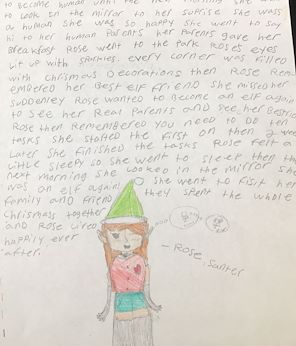 to become human until the next morning she w
to look in the mirror to her surprise she was
a human she was so happy she went to say
hi to her human Parents her Parents gave her
Breakfast Rose went to the Park Rose's eyes
Lit up with sparkles. every corner was filled
with chrismas Decorations then Rose Rem
embered her Best elf friend she missed her
suddenley Rose wanted to become an elf again
to see her Real Parents and see her Best
Rose then Remembered you need to do ten
tasks she started the first on then 2 wee
Later she finished the tasks Rose felt a
Little sleepy so she went to sleep then th
next morning she looked in the mirror she
was an elf again. she went to fisit her
family and friend they spent the whole
Chrismass together
and Rose Lived
happily ever
after.
- Rose, Santer